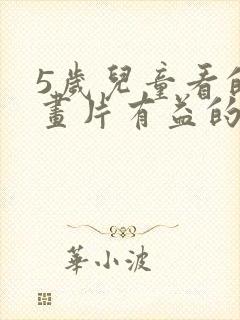 5歲兒童看的
畫片有益的
華小波